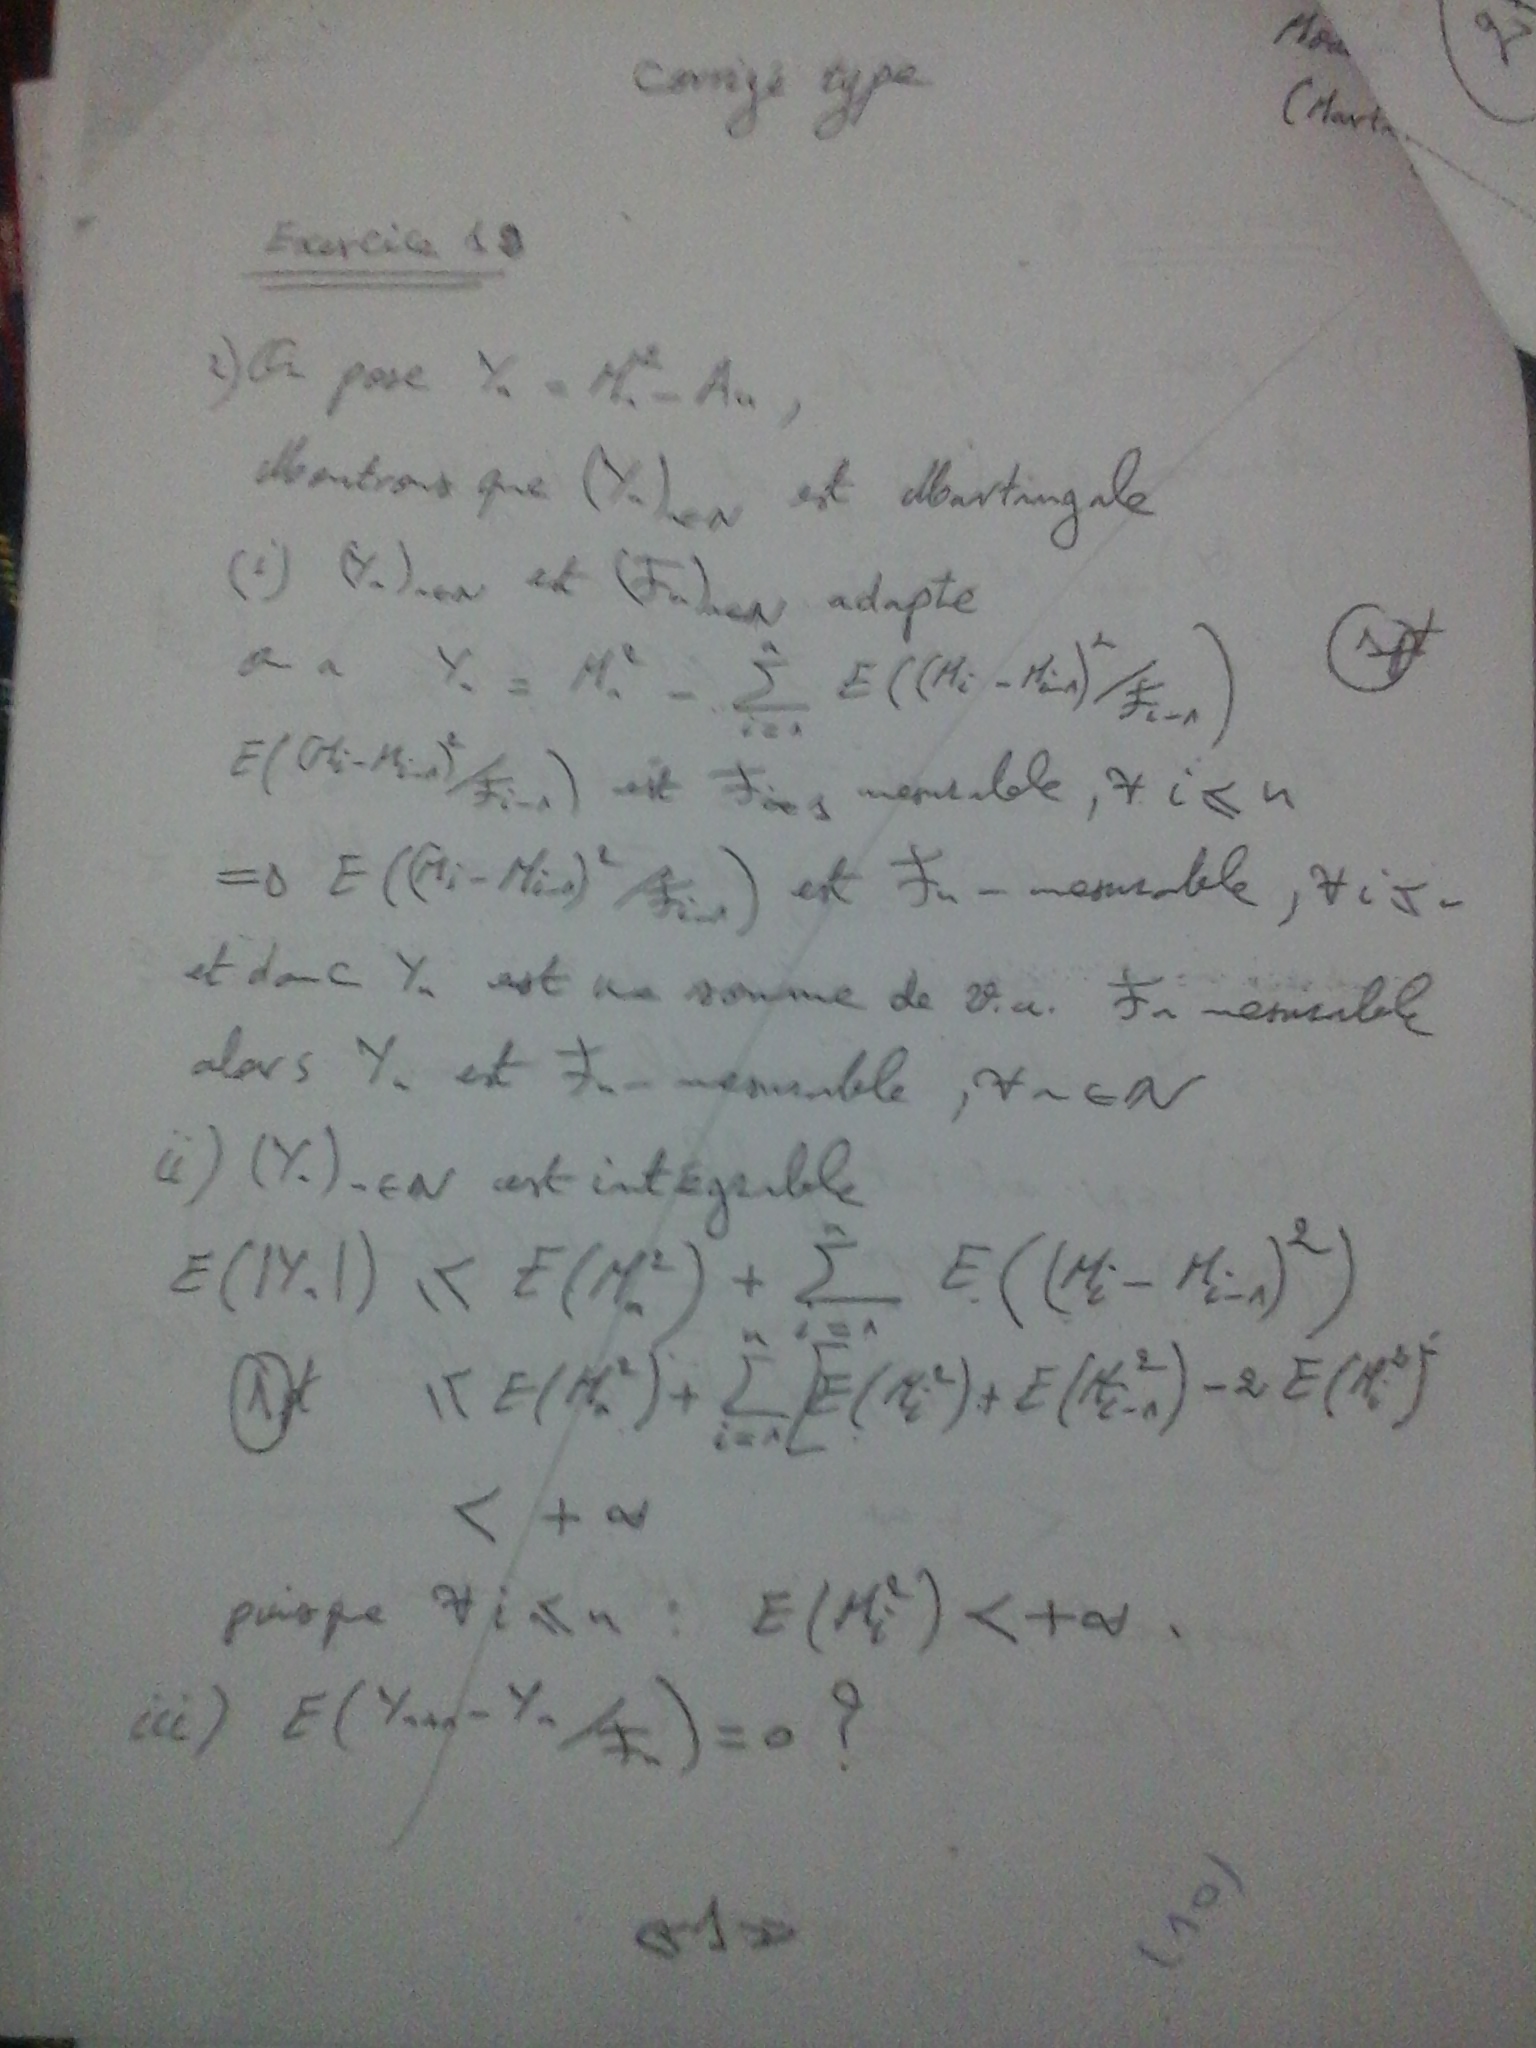 Corrigé type
(Mart
Exercice 1
2) On pose Yₙ = Mₙ² - Aₙ ,
Montrons que (Yₙ)ₙ∈N est Martingale
(i) (Yₙ)ₙ∈N est (Fₙ)ₙ∈N adapte
on a Yₙ = Mₙ² - Σᵢ₌₁ⁿ E((Mᵢ - Mᵢ₋₁)²/Fᵢ₋₁)
1pt
E((Mᵢ - Mᵢ₋₁)²/Fᵢ₋₁) est Fᵢ₋₁ mesurable, ∀ i ≤ n
=> E((Mᵢ - Mᵢ₋₁)²/Fᵢ₋₁) est Fₙ - mesurable, ∀ i ≤ n
et donc Yₙ est une somme de v.a. Fₙ mesurable
alors Yₙ est Fₙ - mesurable, ∀ n ∈ N
ii) (Yₙ)ₙ∈N est intégrable
E(|Yₙ|) ≤ E(Mₙ²) + Σᵢ₌₁ⁿ E((Mᵢ - Mᵢ₋₁)²)
1pt ≤ E(Mₙ²) + Σᵢ₌₁ⁿ [E(Mᵢ²) + E(Mᵢ₋₁²) - 2 E(Mᵢ²)
< + ∞
puisque ∀ i ≤ n : E(Mᵢ²) < +∞.
iii) E(Yₙ₊₁ - Yₙ/Fₙ) = 0 ?
«1»
(10)